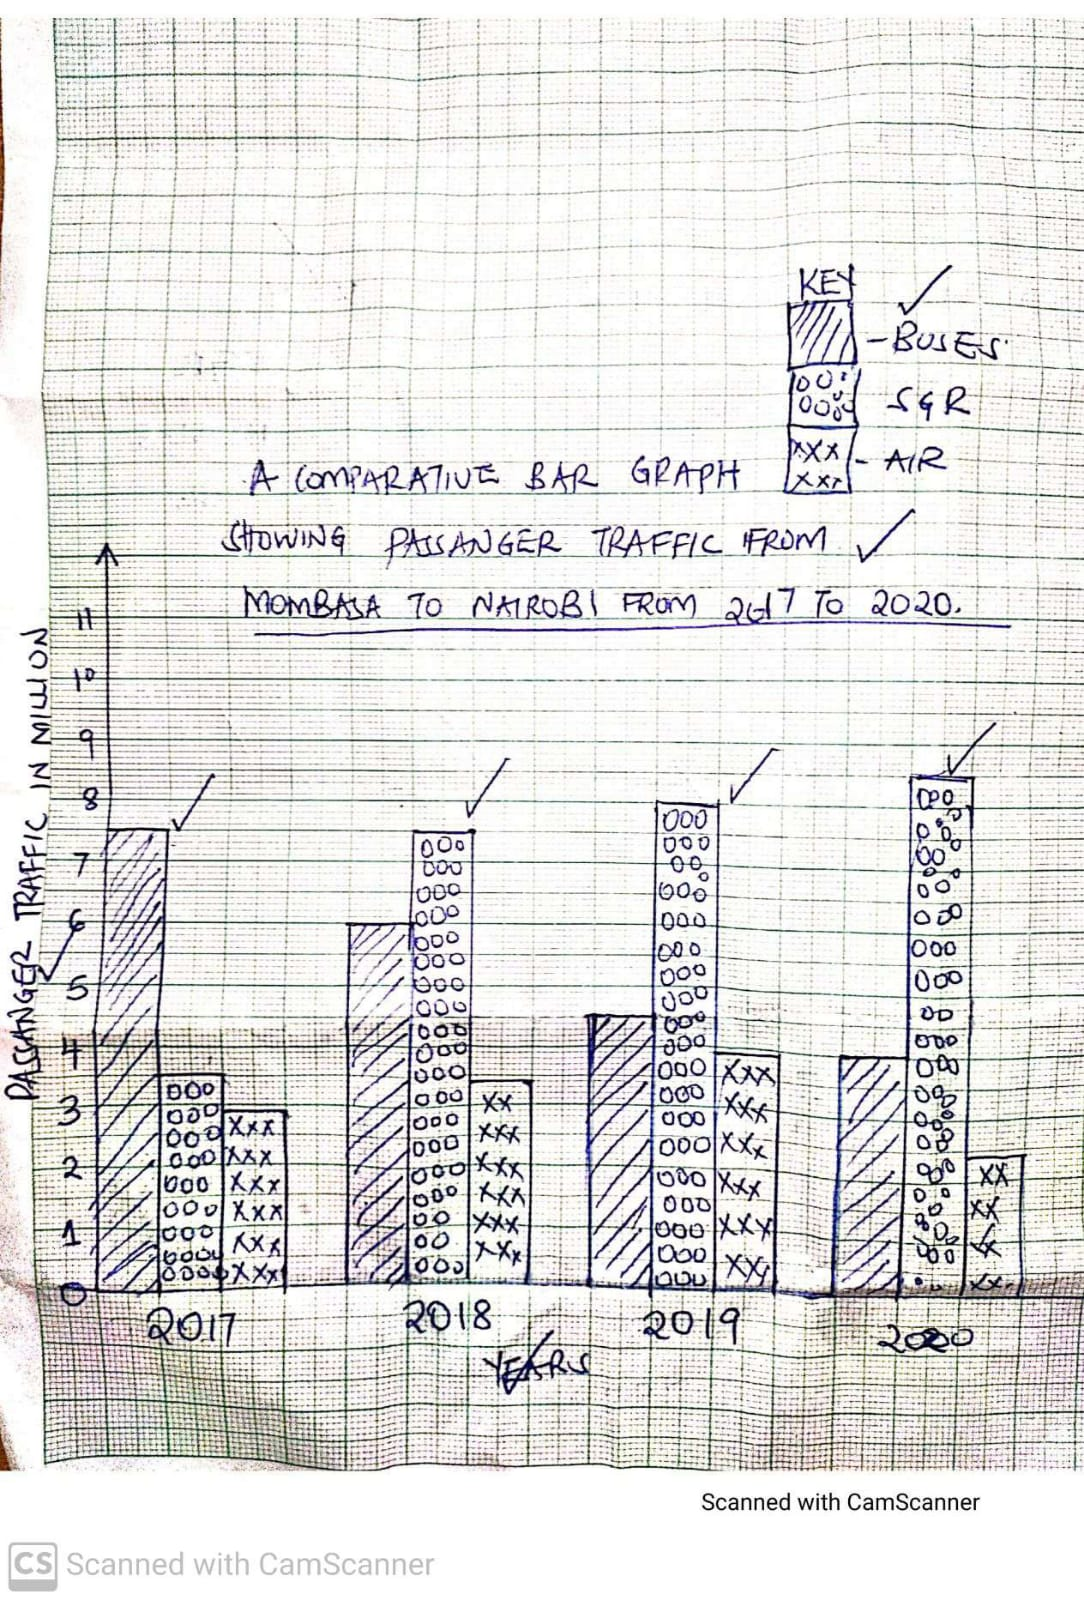 KEY
-BUSES
SGR
- AIR
A COMPARATIVE BAR GRAPH
SHOWING PASSANGER TRAFFIC FROM
MOMBASA TO NAIROBI FROM 2017 TO 2020.
PASSANGER TRAFFIC IN MILLION
11
10
9
8
7
6
5
4
3
2
1
0
2017 2018 2019 2020
YEARS
Scanned with CamScanner
CS Scanned with CamScanner